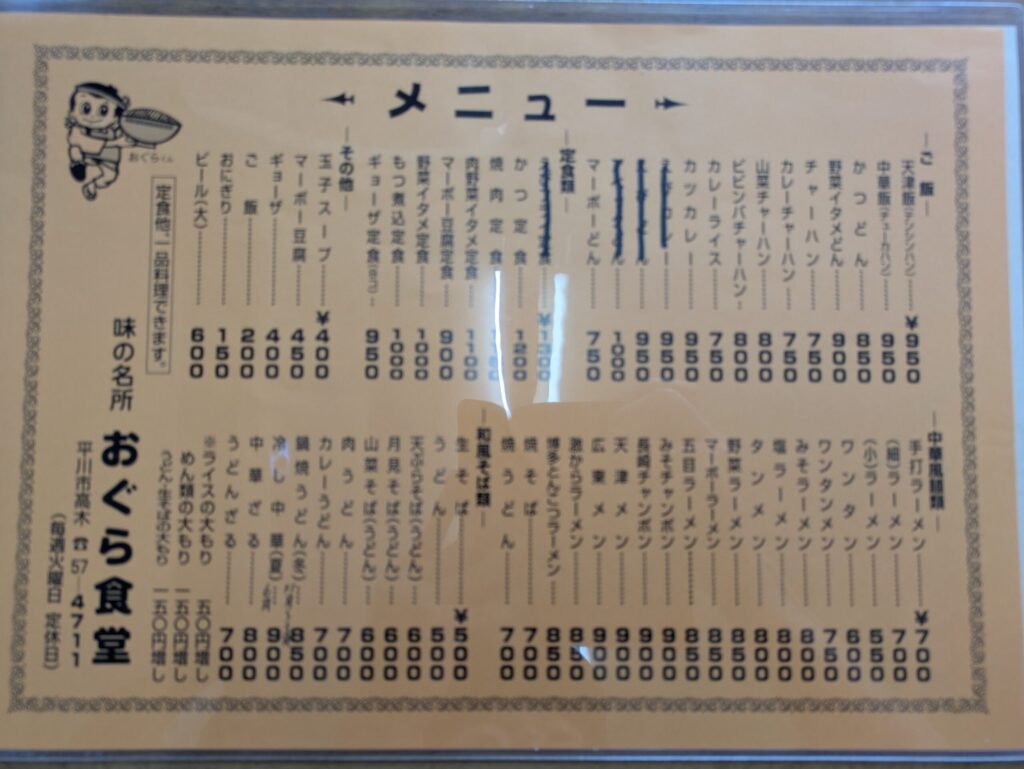 メニュー
ご飯
天津飯(テンシンハン) ¥950
中華飯(チューカハン) 950
かつどん 850
野菜イタメどん 900
チャーハン 750
カレーチャーハン 750
山菜チャーハン 800
ビビンバチャーハン 800
カレーライス 750
カツカレー 950
950
950
1000
マーボーどん 750
定食類
かつ定食 1200
焼肉定食
肉野菜イタメ定食 1100
マーボー豆腐定食 900
野菜イタメ定食 1000
もつ煮込定食 1000
ギョーザ定食(8コ) 950
その他
玉子スープ ¥400
マーボー豆腐 450
ギョーザ 400
ご飯 200
おにぎり 150
ビール(大) 600
定食他、一品料理できます。
おぐらくん
中華風麺類
手打ラーメン ¥700
(細)ラーメン 700
(小)ラーメン 550
ワンタン 600
ワンタンメン 750
みそラーメン 800
塩ラーメン 800
タンメン 800
野菜ラーメン 800
マーボーラーメン 800
五目ラーメン 850
みそチャンポン 900
長崎チャンポン 900
天津メン 900
広東メン 900
激からラーメン 850
博多とんこつラーメン 850
焼そば 700
焼うどん 700
和風そば類
生そば ¥500
うどん 500
天ぷらそば(うどん) 600
月見そば(うどん) 600
山菜そば(うどん) 600
肉うどん 700
カレーうどん 700
鍋焼うどん(冬) 850
冷し中華(夏) 900
中華ざる 800
うどんざる 700
※ライスの大もり 五〇円増し
めん類の大もり 一五〇円増し
うどん・生そばの大もり 一五〇円増し
味の名所 おぐら食堂
平川市高木 ☎57―4711
(毎週火曜日 定休日)